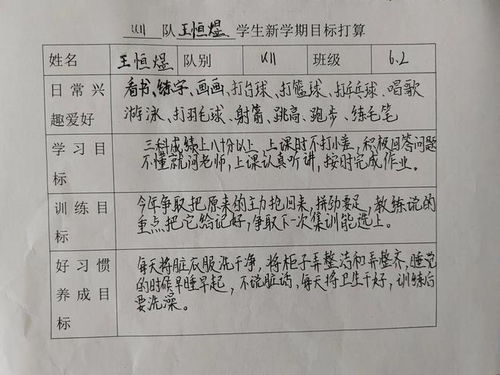 U11 队 王恒煜 学生新学期目标打算
姓名 王恒煜 队别 U11 班级 6.2
日常兴趣爱好 看书、练字、画画、打台球、打篮球、打乒乓球、唱歌
游泳、打羽毛球、射箭、跳高、跑步、练毛笔
学习目标 三科成绩上八十分以上，上课时不打小差，积极回答问题
不懂就问老师，上课认真听讲，按时完成作业。
训练目标 今年争取把原来的主力抢回来，拼劲要足，教练说的
重点把它给记好，争取下一次集训能选上。
好习惯养成目标 每天将脏衣服洗干净，将柜子弄整洁和弄整齐，睡觉
的时候早睡早起，不说脏话，每天将卫生干好，训练后
要洗澡。